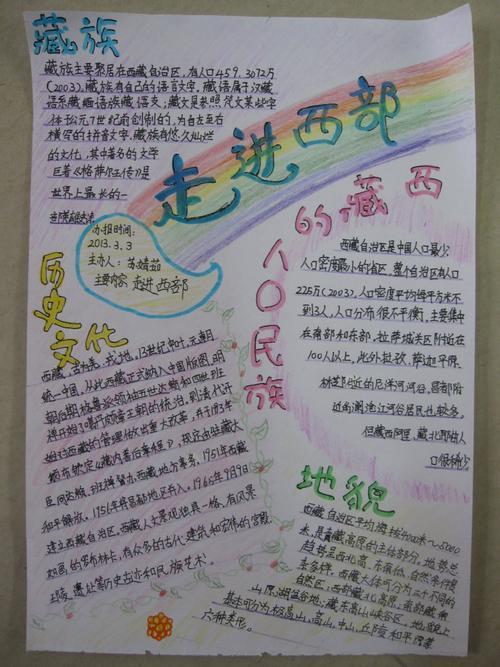 藏族
藏族主要聚居在西藏自治区,有人口459.3072万
(2003),藏族有自己的语言文字,藏语属于汉藏
语系藏缅语族藏语支;藏文是参照梵文某些字
体于公元7世纪前创制的,为自左至右
横写的拼音文字,藏族有悠久灿烂
的文化,其中著名的文学
巨著《格萨尔王传》是
世界上最长的一
走进西部
办报时间:
2013.3.3
主办人:苏婧茹
主要内容:走进西部
西藏的
人口民族
西藏自治区是中国人口最少
人口密度最小的省区,整个自治区有人口
225万(2003),人口密度平均每平方米不
到3人,人口分布很不平衡,主要集中
在南部和东部,拉萨城关区附近在
100人以上,此外拉孜、萨迦平原、
林芝附近的尼洋河河谷,昌都附
近的澜沧江河谷居民也较多。
但藏西阿里、藏北那曲人
口很稀少
历史文化
西藏,古为羌、戎地,13世纪中叶,元朝
统一中国,从此西藏正式纳入中国版图,明
朝后期,格鲁派领袖五世达赖和四世班
相对西藏的管理做出重大改革,并于1793年
都市钦定《藏内善后章程》,规定由驻藏大
臣同达赖、班禅督办西藏地方事务,1951年西藏
和平解放,1956年将昌都地区并入,1965年9月9日
建立西藏自治区,西藏人文景观独具一格,有风景
如画的罗布林卡,有众多的古代建筑和宏伟的宫殿、
王陵、遗址等历史古迹和民族艺术!
地貌
西藏自治区平均海拔4000米~5000
米,是青藏高原的主体部分,地势总
趋势是西北高,东南低,自然条件复
杂多样,西藏大体可分为三个不同的
自然区,西部高原,
山原、湖盆谷地,藏东高山峡谷区,地貌上
基本可分为极高山,高山,中山,丘陵和平原等
六种类形。